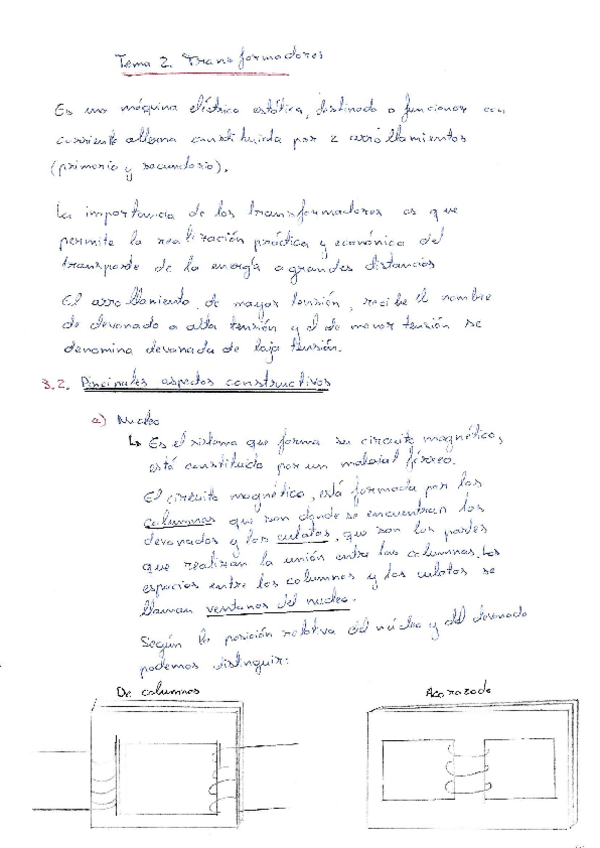 Tema 2. Transformadores
Es una máquina eléctrica estática, destinada a funcionar con
corriente alterna constituida por 2 arrollamientos
(primario y secundario).
La importancia de los transformadores es que
permite la realización práctica y económica del
transporte de la energía a grandes distancias
El arrollamiento de mayor tensión, recibe el nombre
de devanado a alta tensión y el de menor tensión se
denomina devanada de baja tensión.
3.2. Principales aspectos constructivos
a) Nucleo
↳ Es el sistema que forma su circuito magnético,
está constituido por un material férreo.
El circuito magnético, está formada por las
columnas que son donde se encuentran los
devanados y las culatas, que son las partes
que realizan la unión entre las columnas. Los
espacios entre las columnas y las culatas se
llaman ventanas del nucleo.
Según la posición relativa del núcleo y del devanado
podemos distinguir:
De columnas
Acorazado